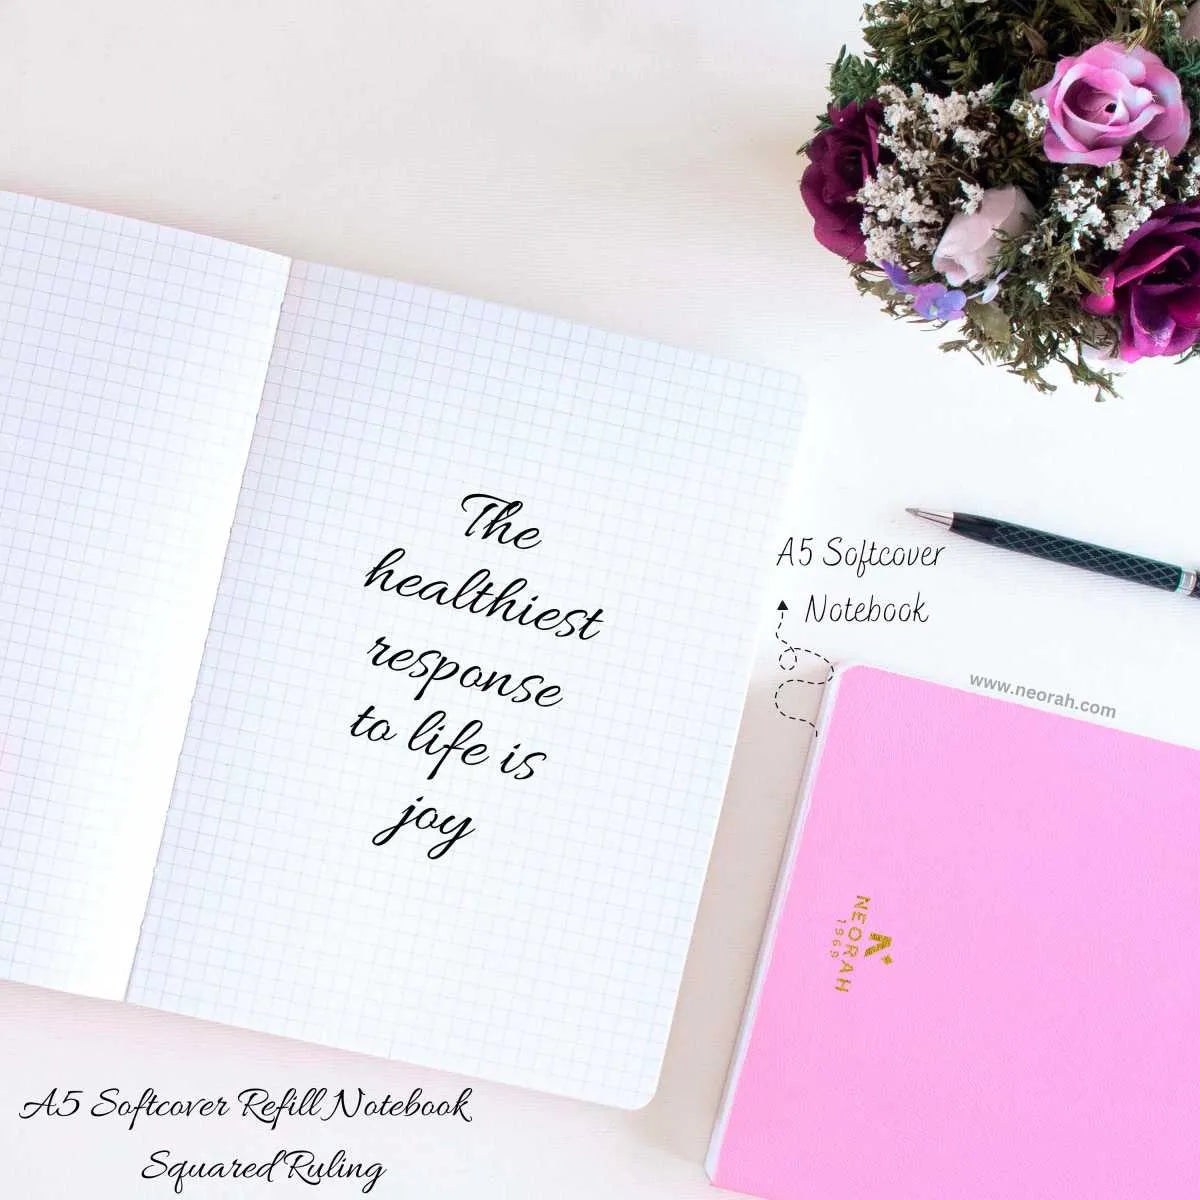 The
healthiest
response
to life is
joy
A5 Softcover
Notebook
www.neorah.com
NEORAH
1969
A5 Softcover Refill Notebook
Squared Ruling